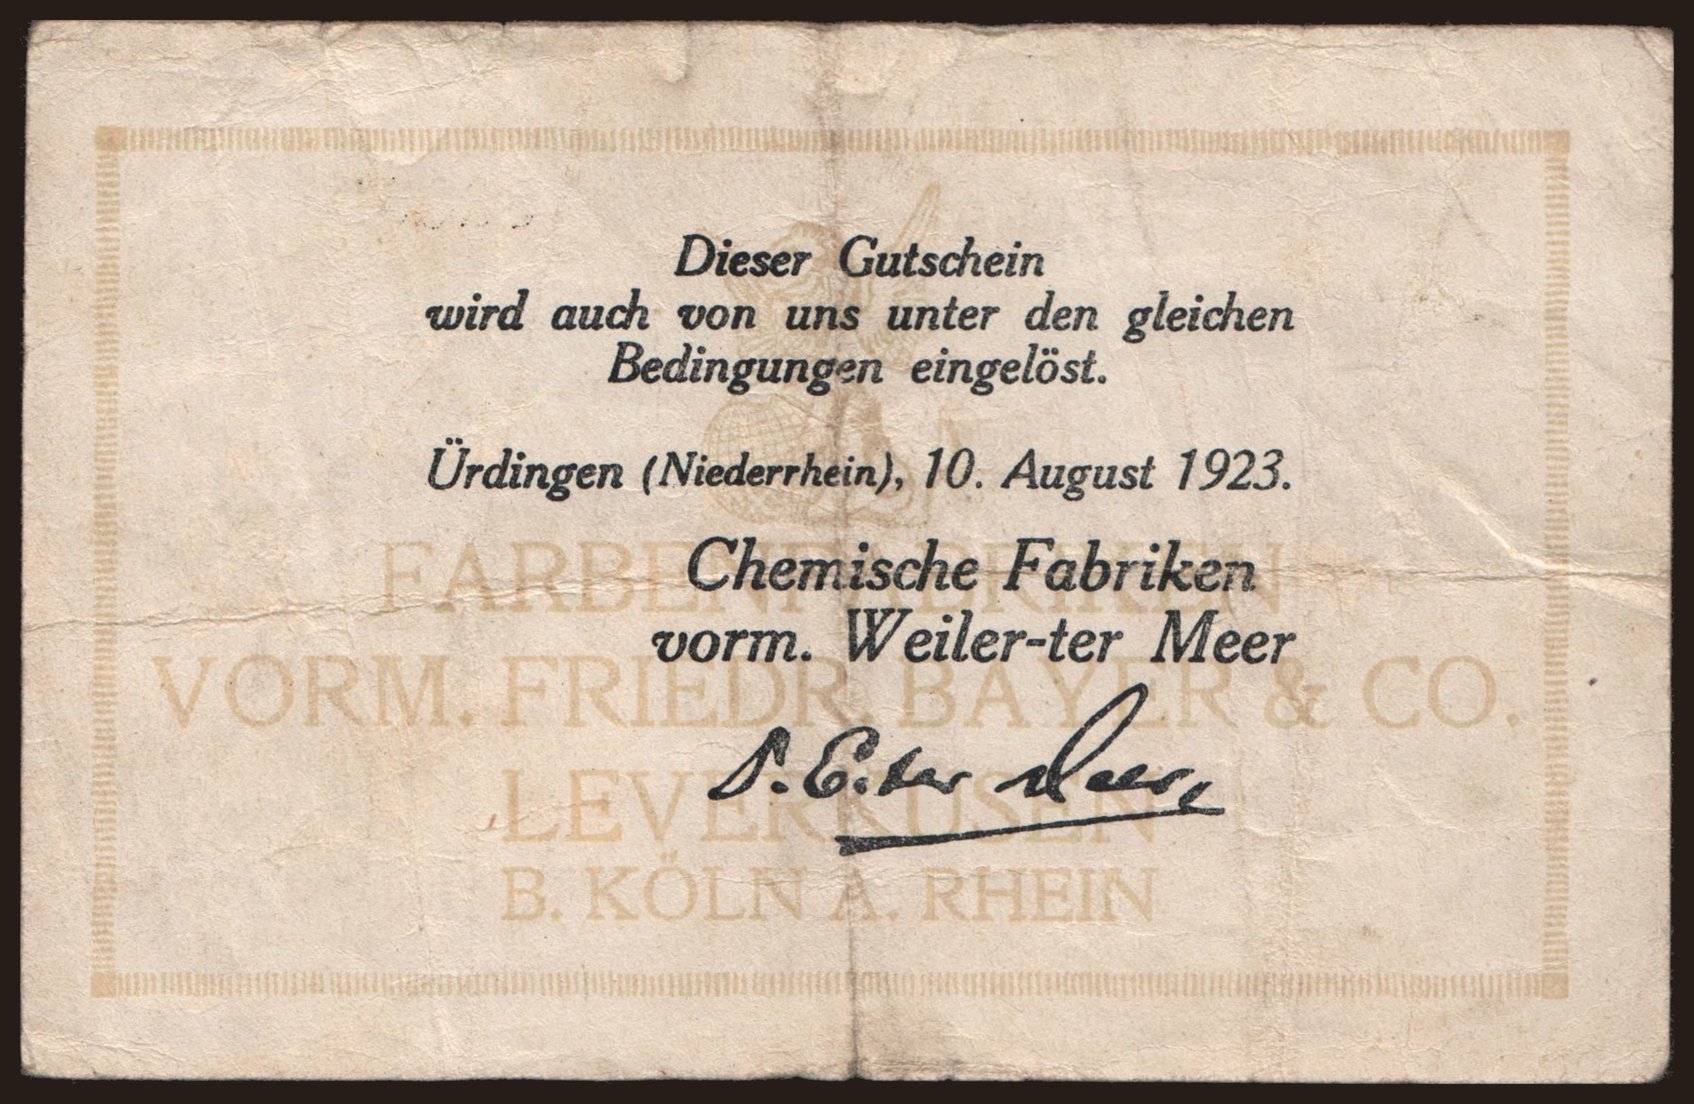 Dieser Gutschein
wird auch von uns unter den gleichen
Bedingungen eingelöst.
Ürdingen (Niederrhein), 10. August 1923.
Chemische Fabriken
vorm. Weiler-ter Meer
P. E. ter Meer
FARBENFABRIKEN
VORM. FRIEDR. BAYER & CO.
LEVERKUSEN
B. KÖLN A. RHEIN